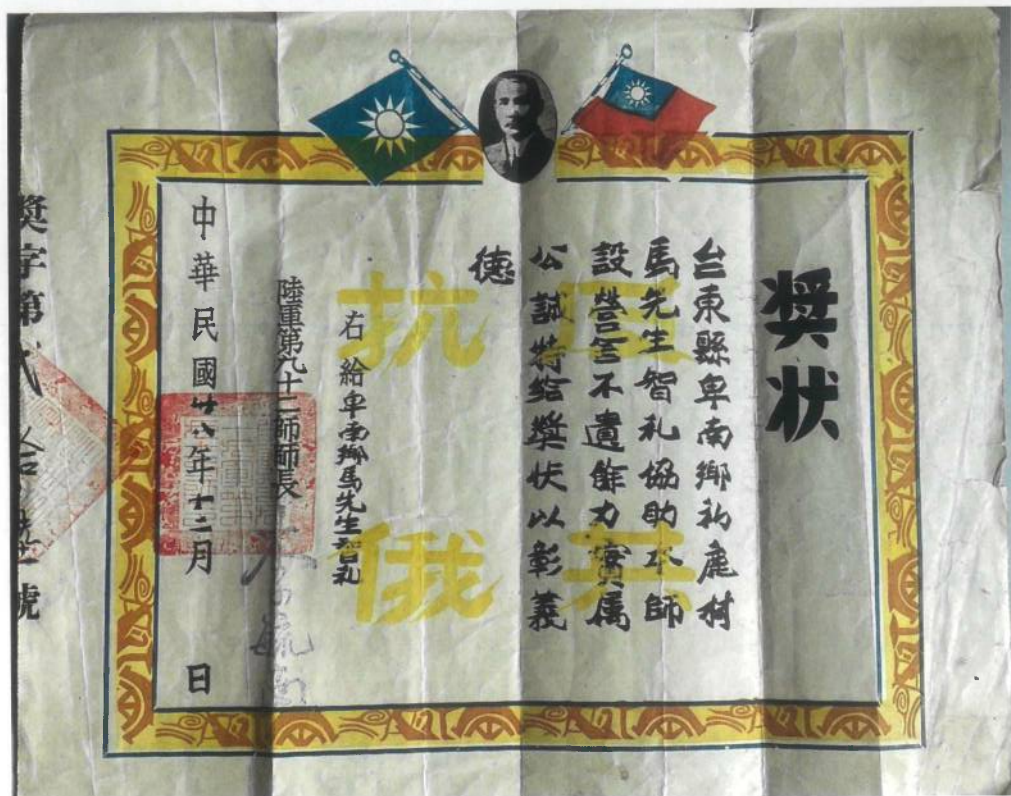 奬状
台東縣卑南鄉初鹿村
馬先生智礼協助本師
設營等不遺餘力實属
公誠特給奬状以彰義
德
反共
抗俄
右給卑南鄉馬先生智礼
陸軍第九十二師師長
中華民國卅八年十二月 日
奬字第 號